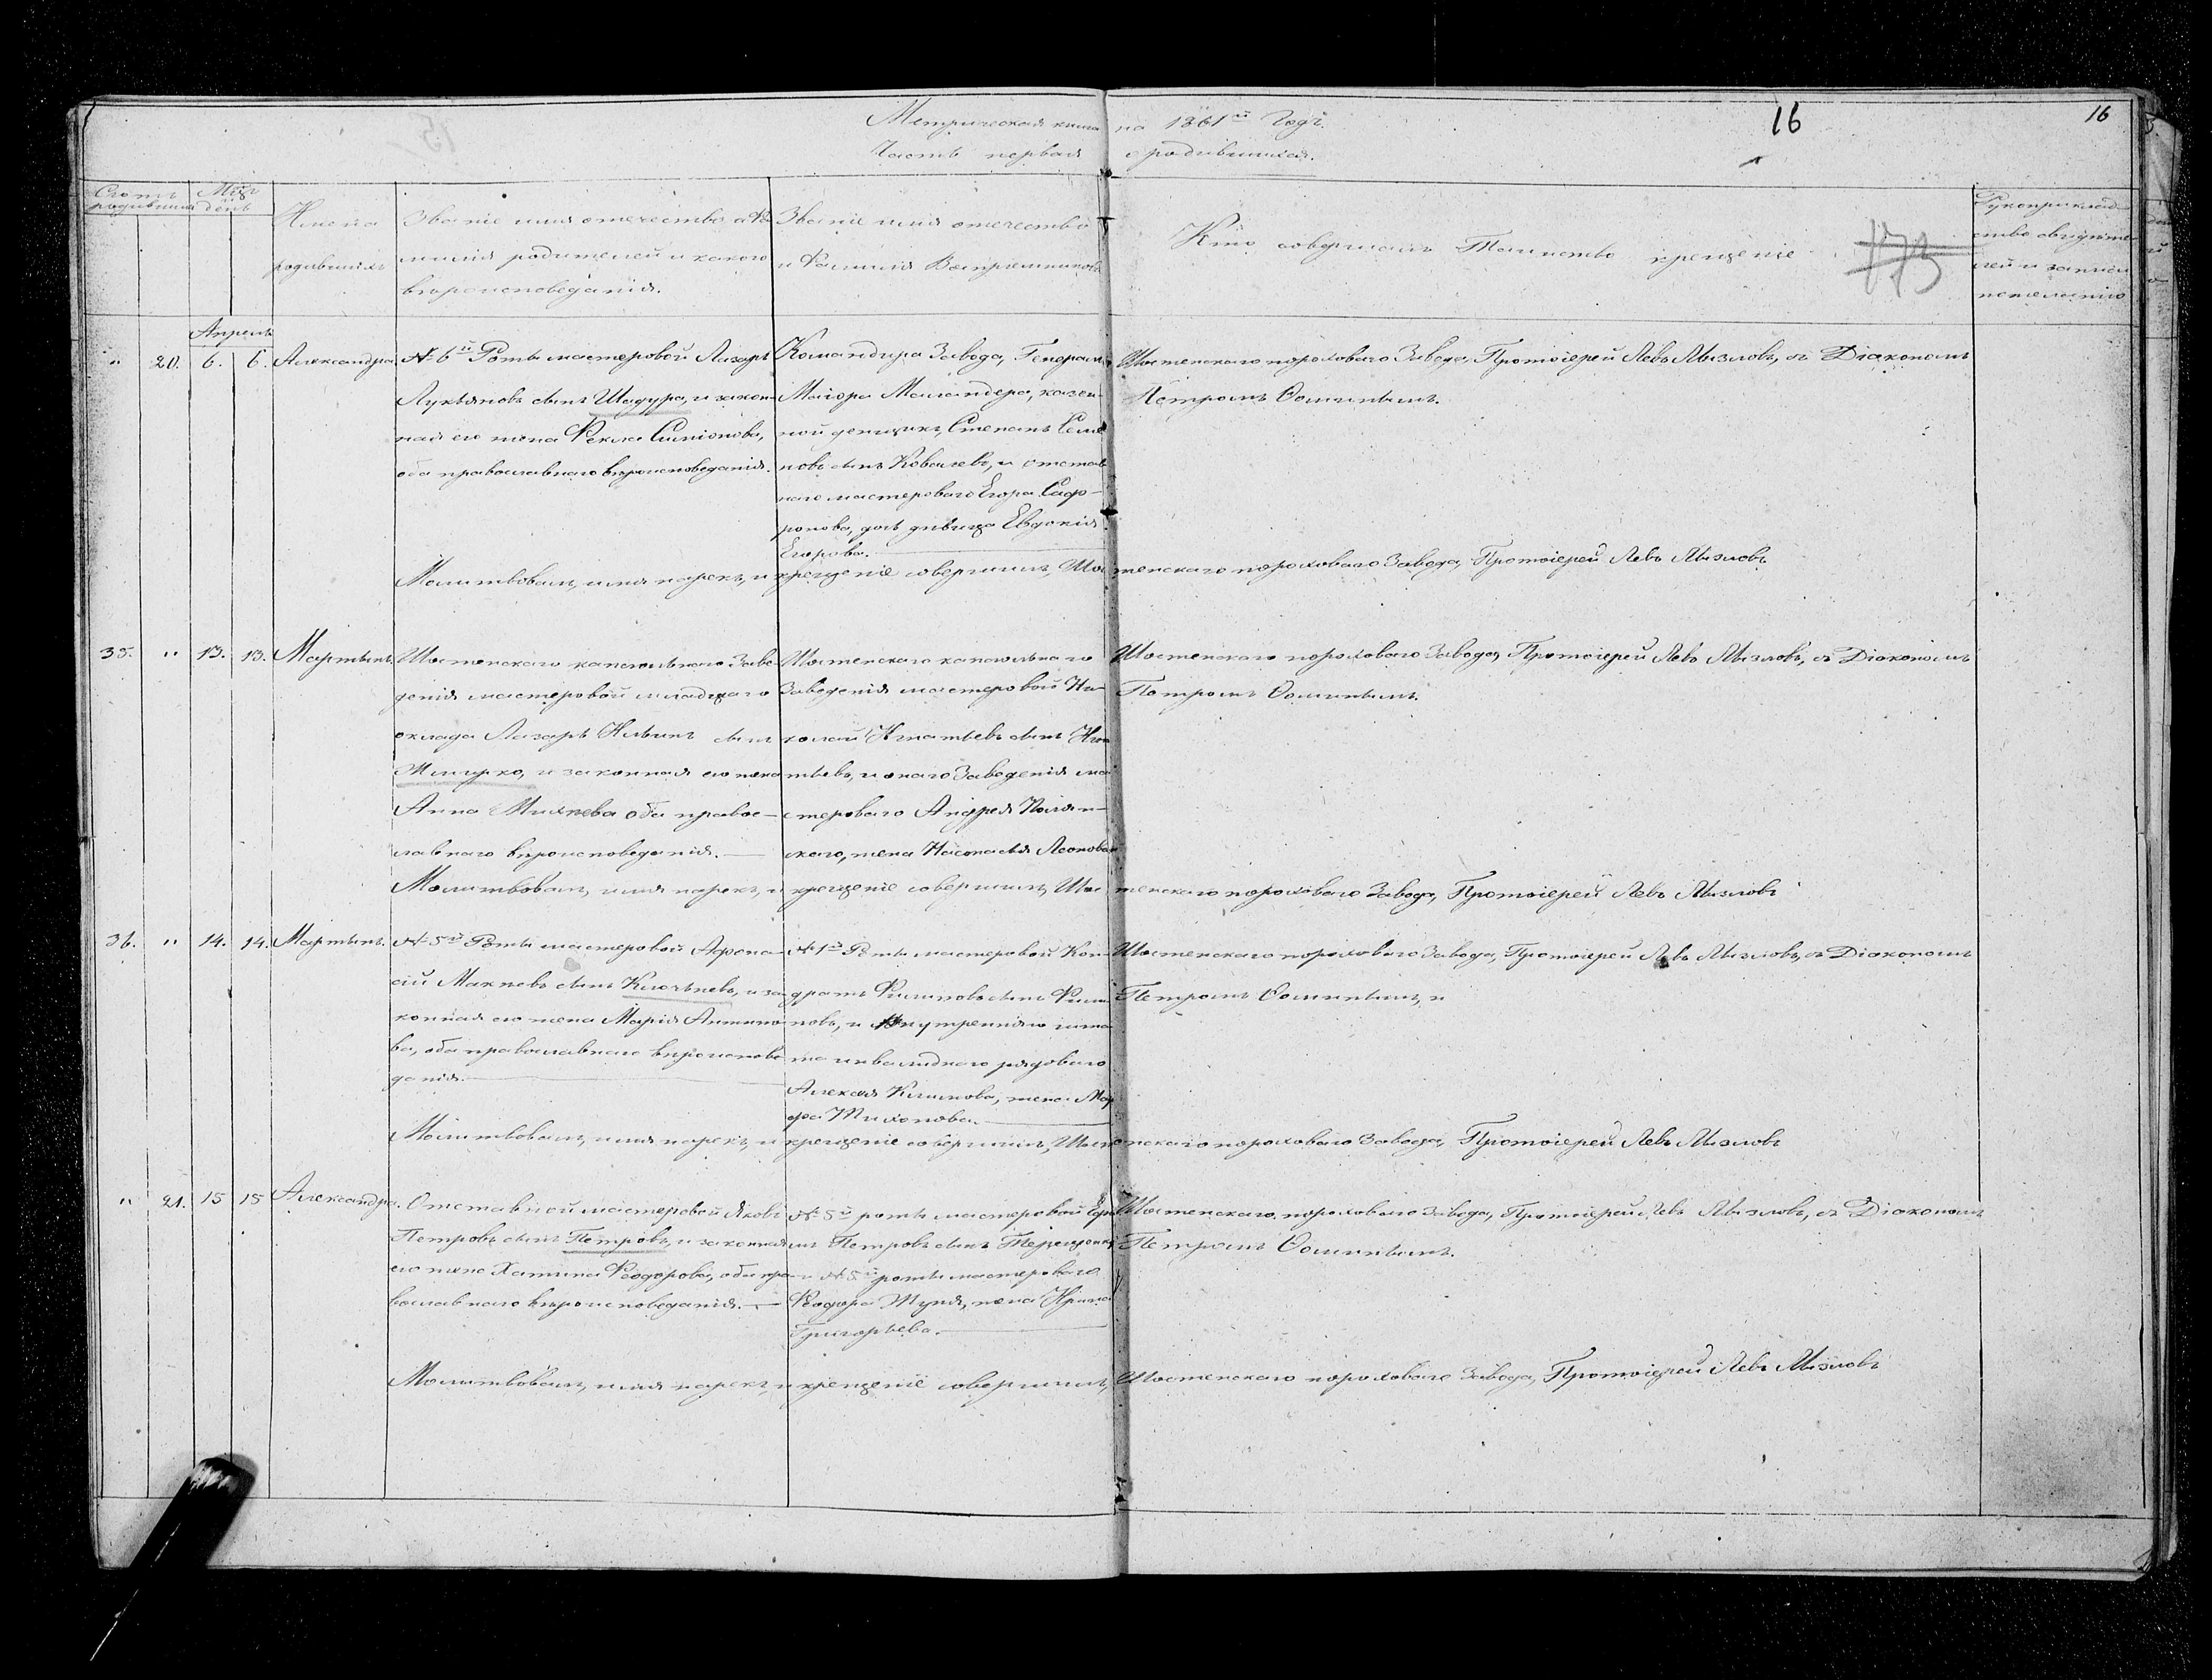 16
16
Метрическая книга на 1861й Годъ.
Часть первая о родившихся.
Счотъ родившихся
Мѣс. день
Имена родившихъ
Званіе имя отечество и Фамилія родителей и какого вѣроисповеданія.
Званіе имя отечество и Фамилія Воспрiемниковъ
Кто совершалъ Таинство крещеніе
173
Рукоприкладство свидѣтелей и записи по желанію
Апрель
" 20. 6. 6. Александра.
№ 6й Роты мастеровой Лазарь
Лукьяновъ сынъ Шадура, и закон-
ная его жена Фекла Симіонова,
оба православнаго вѣроисповеданія.
Командира Завода, Генералъ
Маіора Маландера, казен-
ной денщикъ, Степанъ Семе
новъ сынъ Ковалевъ, и отстав
наго мастероваго Егора Саф-
ронова, дочь дѣвица Евдокія
Егорова.
Шостенскаго пороховаго Завода, Протоіерей Левъ Мызловъ, съ Діакономъ
Петромъ Ѳоминымъ.
Молитвовалъ, имя нарекъ, и крещеніе совершилъ, Шостенскаго пороховаго Завода, Протоіерей Левъ Мызловъ
35. " 13. 13. Мартынъ.
Шостенскаго капсюльнаго Заве
денія мастеровой младшаго
оклада Лазарь Ильинъ сынъ
Жмурко, и законная его жена
Анна Михнева оба право-
славнаго вѣроисповеданія.
Шостенскаго капсюльнаго
Заведенія мастеровой Ни-
колай Игнатьевъ сынъ Игна
тьевъ, и онаго Заведенія ма
стероваго Андрея Полян-
скаго, жена Настасья Леонова
Шостенскаго пороховаго Завода, Протоіерей Левъ Мызловъ, съ Діакономъ
Петромъ Ѳоминымъ.
Молитвовалъ, имя нарекъ, и крещеніе совершилъ, Шостенскаго пороховаго Завода, Протоіерей Левъ Мызловъ
36. " 14. 14. Мартынъ.
№ 5й Роты мастеровой Афона-
сій Макневъ сынъ Ключьневъ, и за
конная его жена Марія Антоно
ва, оба православнаго вѣроисповѣ
данія.
№ 1й Роты мастеровой Кон-
дратъ Филиповъ сынъ Фили
повъ, и внутренняго шта
та инвалиднаго рядоваго
Алексѣя Климова, жена Мар
фа Тихонова.
Шостенскаго пороховаго Завода, Протоіерей Левъ Мызловъ, съ Діакономъ
Петромъ Ѳоминымъ, и
Молитвовалъ, имя нарекъ, и крещеніе совершилъ, Шостенскаго пороховаго Завода, Протоіерей Левъ Мызловъ
" 21. 15 15 Александра.
Отставной мастеровой Яковъ
Петровъ сынъ Петровъ, и законная
его жена Хатина Феодорова, оба пра-
вославнаго вѣроисповеданія.
№ 5й роты мастеровой
Петровъ сынъ Терещенко
и № 5й роты мастероваго
Феодора Жуня, жена Ирина
Григорьева.
Шостенскаго пороховаго Завода, Протоіерей Левъ Мызловъ, съ Діакономъ
Петромъ Ѳоминымъ.
Молитвовалъ, имя нарекъ, и крещеніе совершилъ, Шостенскаго пороховаго Завода, Протоіерей Левъ Мызловъ